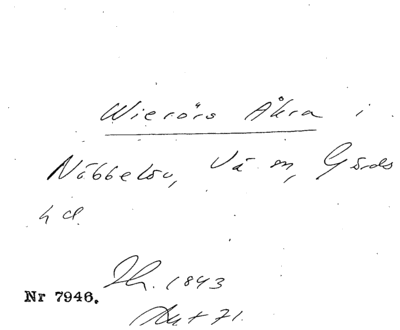 Wierörs Åkra i
Nöbbelöv, Vä sn, Gärds
hd.
Nr 7946.
Th. 1843
Akt 71.